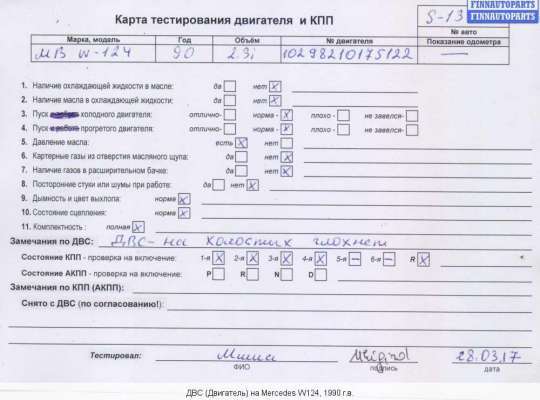 FINNAUTOPARTS
FINNAUTOPARTS
S-13
Карта тестирования двигателя и КПП
№ авто
Марка, модель Год Объём № двигателя Показание одометра
МВ W-124 90 2.3i 10298210175122 —
1. Наличие охлаждающей жидкости в масле: да нет X
2. Наличие масла в охлаждающей жидкости: да нет X
3. Пуск холодного двигателя: отлично- норма - X плохо - не завелся-
4. Пуск прогретого двигателя: отлично- норма - X плохо - не завелся-
5. Давление масла: есть X нет
6. Картерные газы из отверстия масляного щупа: да нет X
7. Наличие газов в расширительном бачке: да нет X
8. Посторонние стуки или шумы при работе: да нет X
9. Дымность и цвет выхлопа: норма X
10. Состояние сцепления: норма X
11. Комплектность: полная X
Замечания по ДВС: ДВС - на холостых глохнет
Состояние КПП - проверка на включение: 1-я X 2-я X 3-я X 4-я X 5-я — 6-я — R X
Состояние АКПП - проверка на включение: P R N D
Замечания по КПП (АКПП):
Снято с ДВС (по согласованию!):
Тестировал: Миша 28.03.17
ФИО подпись дата
ДВС (Двигатель) на Mercedes W124, 1990 г.в.